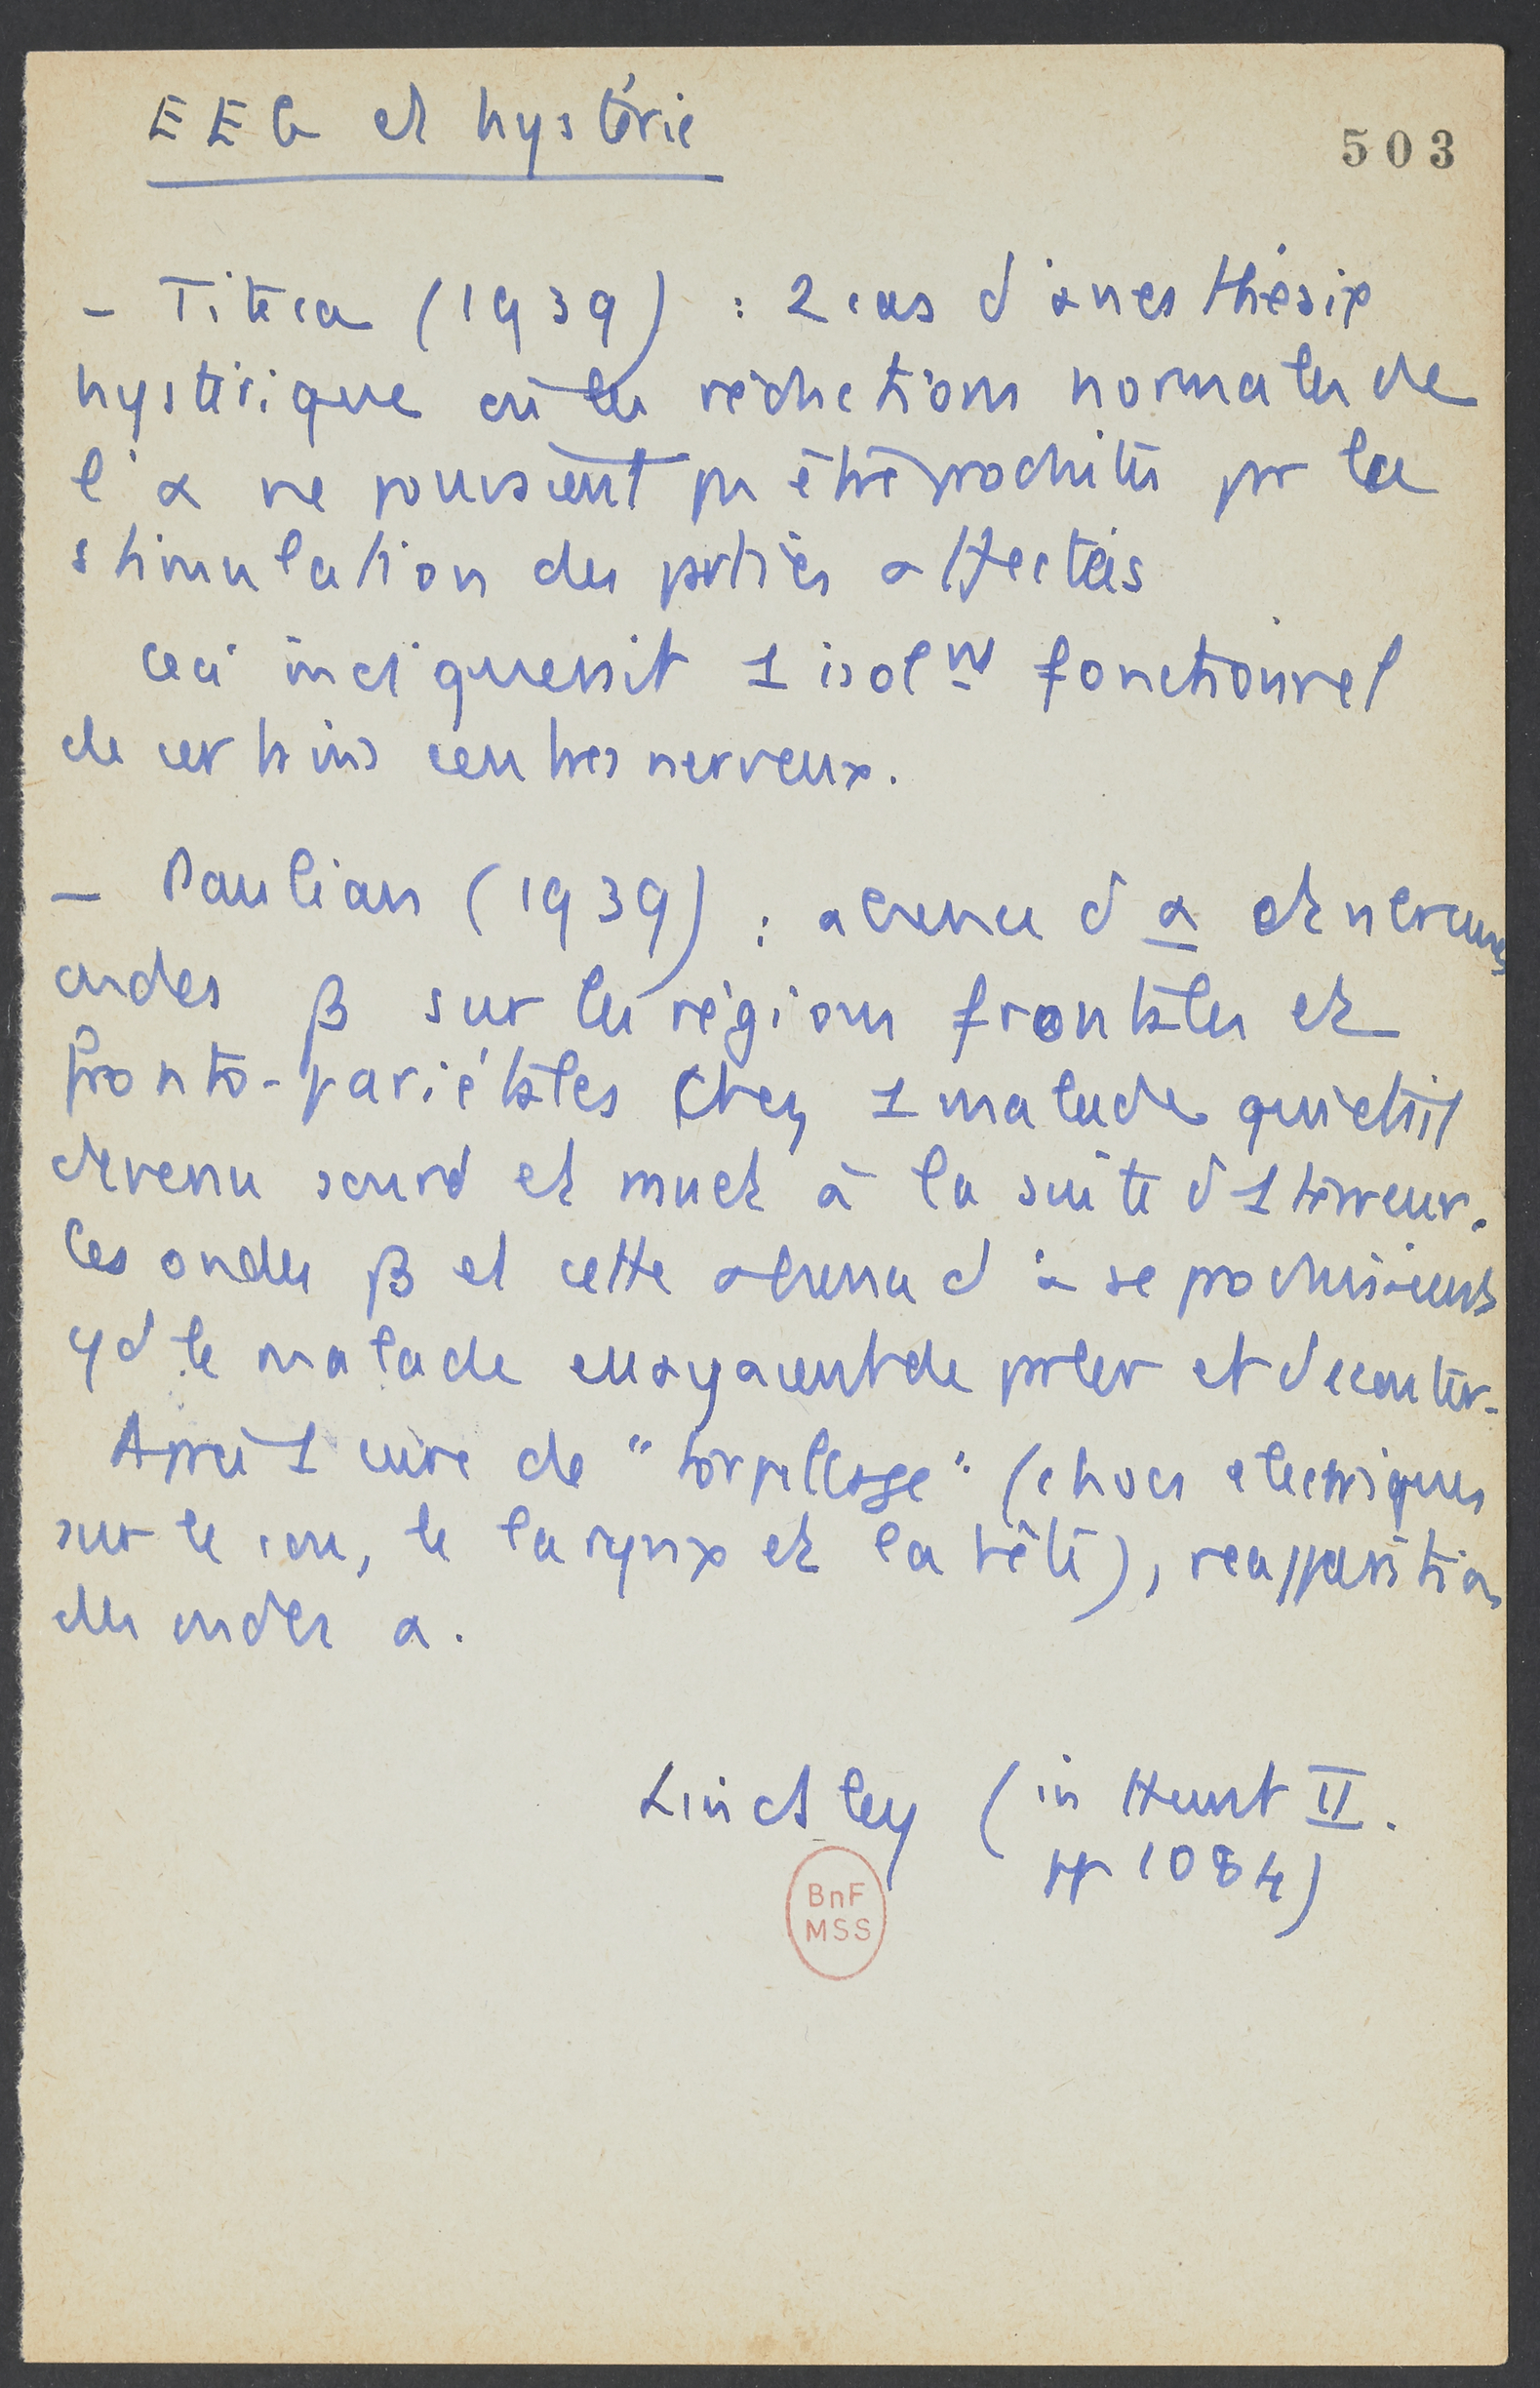 EEG et hystérie
503
- Titeca (1939) : 2 cas d'anesthésie
hystérique où les réductions normales de
l'α ne pouvaient pas être produites par la
stimulation des parties affectées
Ceci indiquerait 1 isolnt fonctionnel
de certains centres nerveux.
- Paulian (1939) : absence d'α et nbreuses
ondes β sur les régions frontales et
fronto-pariétales chez 1 malade qui était
devenu sourd et muet à la suite d'1 terreur.
Ces ondes β et cette absence d'α se produisaient
qd le malade essayaient de parler et d'écouter.
Après 1 cure de "torpillage" (chocs électriques
sur le cou, le larynx et la tête), réapparition
des ondes α.
Lindsley (in Hunt II.
pp 1084)
BnF
MSS